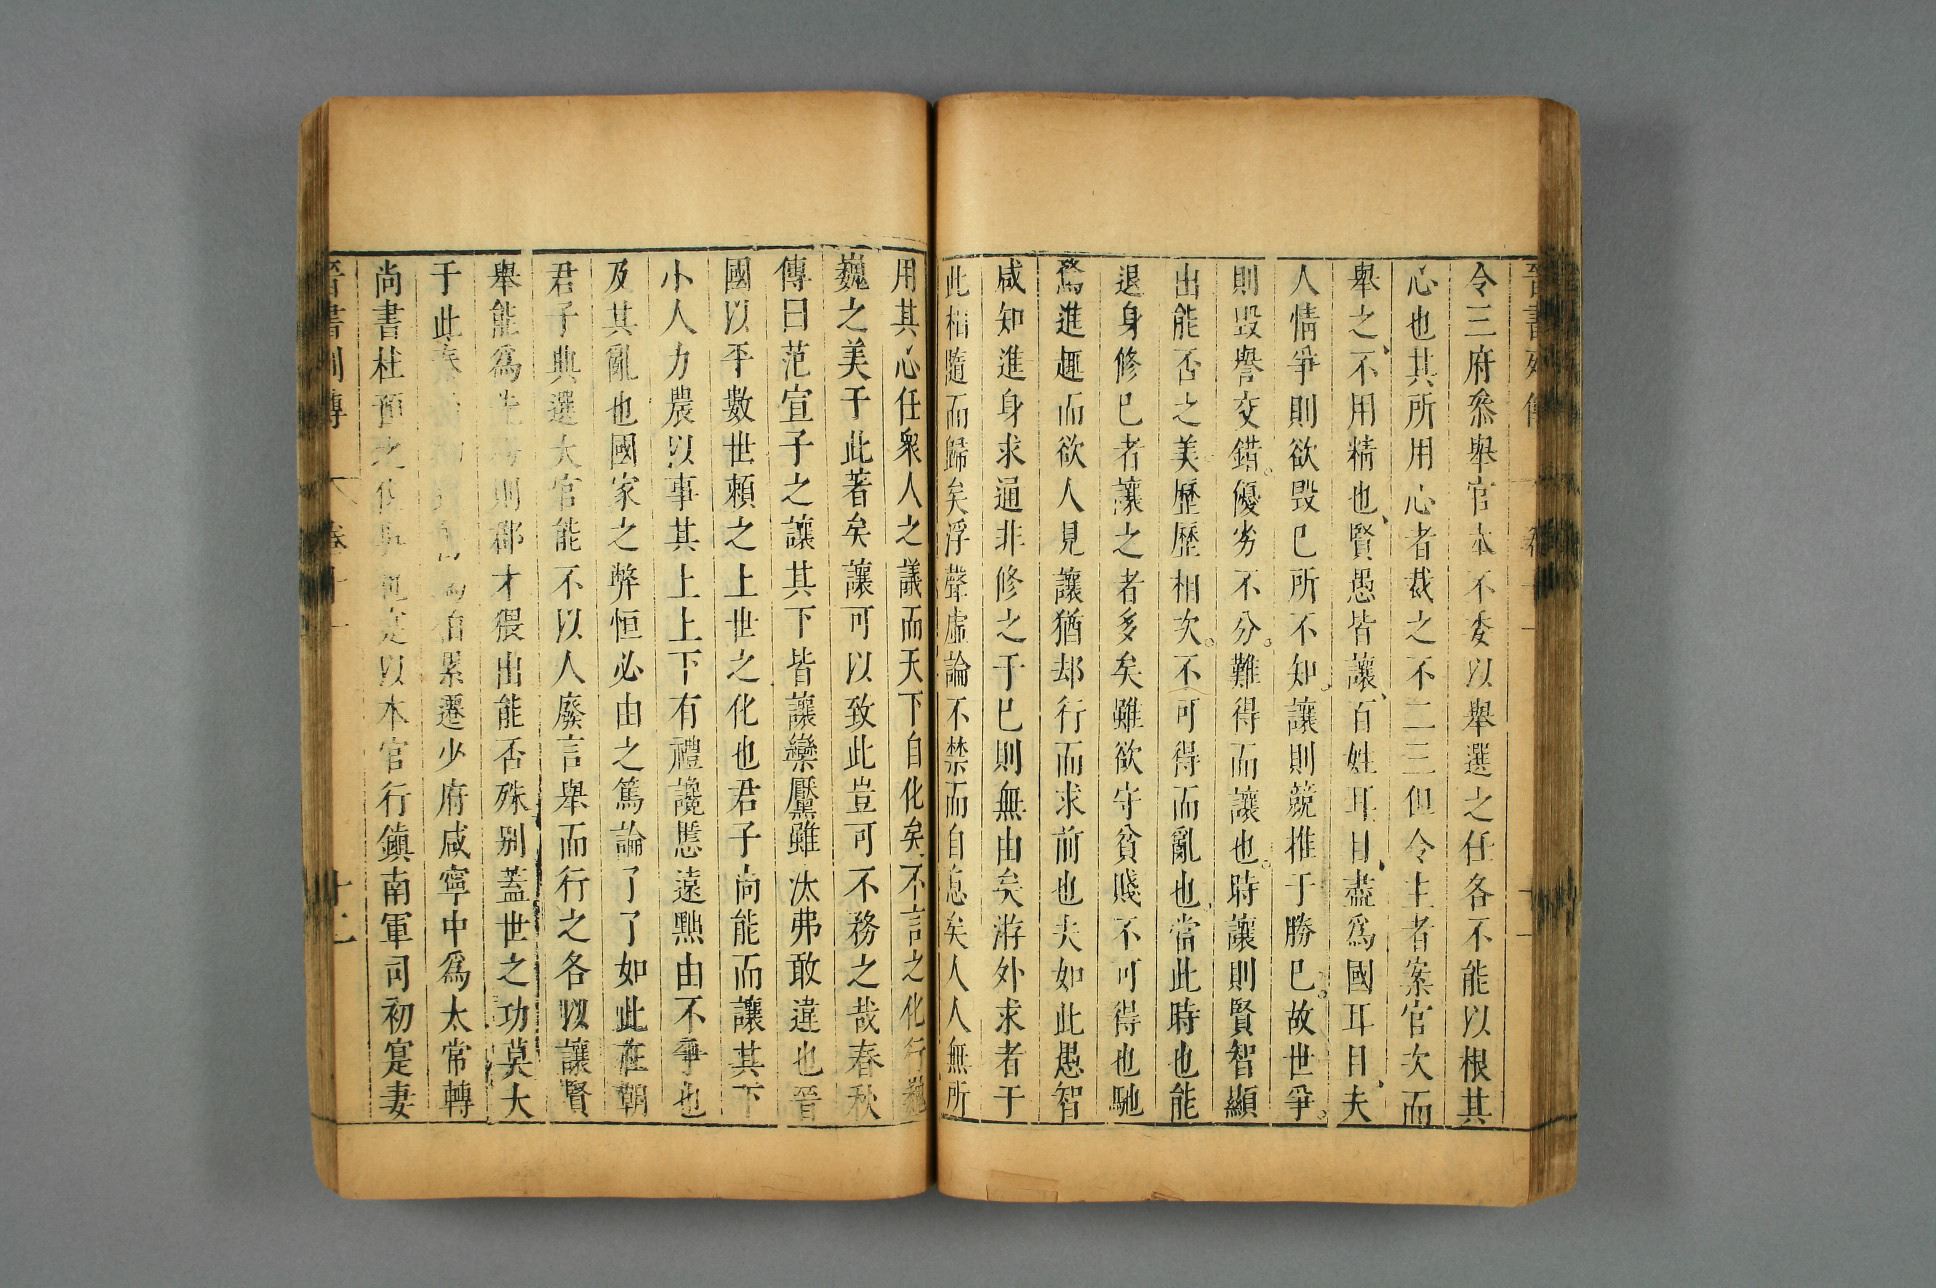 令三府參舉官本不委以舉選之任各不能以根其
心也其所用心者裁之不二三但令主者案官次而
舉之不用精也賢愚皆讓百姓耳目盡爲國耳目夫
人情爭則欲毀已所不知讓則競推于勝已故世爭
則毀譽交錯優劣不分難得而讓也時讓則賢智顯
出能否之美歷歷相次不可得而亂也當此時也能
退身修已者讓之者多矣雖欲守貧賤不可得也馳
騖進趣而欲人見讓猶却行而求前也夫如此愚智
咸知進身求通非修之于已則無由矣游外求者于
此相隨而歸矣浮聲虛論不禁而自息矣人人無所
用其心任衆人之議而天下自化矣不言之化行巍
巍之美于此著矣讓可以致此豈可不務之哉春秋
傳曰范宣子之讓其下皆讓欒黶雖汰弗敢違也晉
國以平數世賴之上世之化也君子尚能而讓其下
小人力農以事其上上下有禮讒慝遠黜由不爭也
及其亂也國家之弊恒必由之篤論了了如此在朝
君子典選大官能不以人廢言舉而行之各以讓賢
舉能爲先務則郡才猥出能否殊别蓋世之功莫大
于此累遷少府咸寧中爲太常轉
尚書杜預之伐吳也寔以本官行鎮南軍司初寔妻
晉書列傳 卷十一 十二